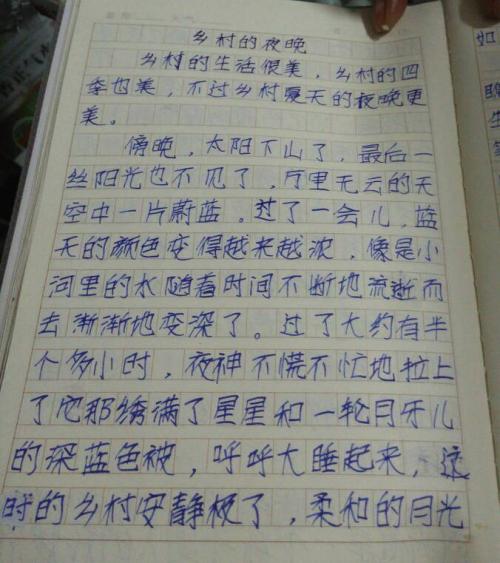 乡村的夜晚
乡村的生活很美，乡村的四
季也美，不过乡村夏天的夜晚更
美。
傍晚，太阳下山了，最后一
丝阳光也不见了，万里无云的天
空中一片蔚蓝。过了一会儿，蓝
天的颜色变得越来越浓，像是小
河里的水随着时间不断地流逝而
去渐渐地变深了。过了大约有半
个多小时，夜神不慌不忙地拉上
了它那绣满了星星和一轮月牙儿
的深蓝色被，呼呼大睡起来，这
时的乡村安静极了，柔和的月光
如